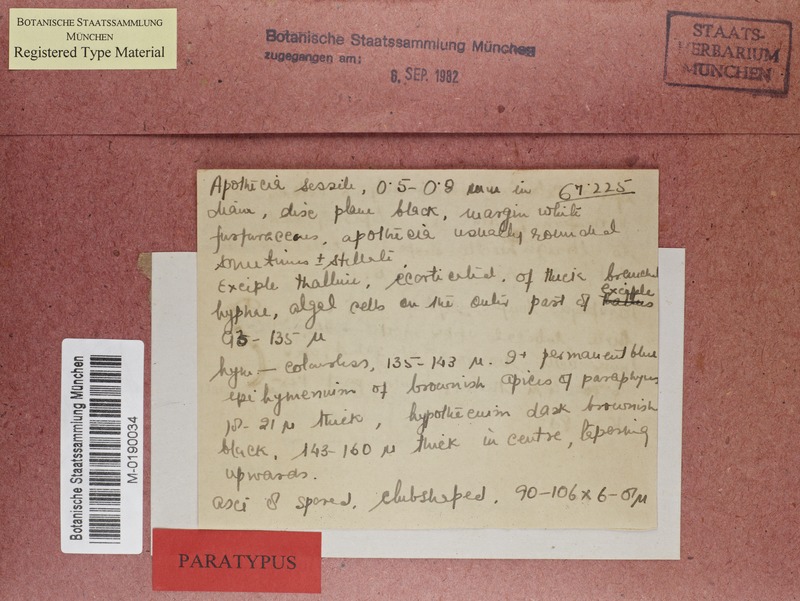 BOTANISCHE STAATSSAMMLUNG
MÜNCHEN
Registered Type Material
Botanische Staatssammlung München
zugegangen am:
6. SEP. 1982
STAATS-
HERBARIUM
MÜNCHEN
67.225
Apothecia sessile, 0.5-0.8 mm in
diam, disc plane black, margin white
furfuraceous, apothecia usually rounded
sometimes ± stellate.
Exciple thalline, ecorticated, of thick branched
hyphae, algal cells on the outer part of exciple
93-135 µ
hym - colourless, 135-143 µ. I+ permanent blue
epihymenium of brownish apices of paraphyses
18-21 µ thick, hypothecium dark brownish
black, 143-160 µ thick in centre, tapering
upwards.
asci 8 spored, clubshaped, 90-106 x 6-8 µ
Botanische Staatssammlung München
M-0190034
PARATYPUS